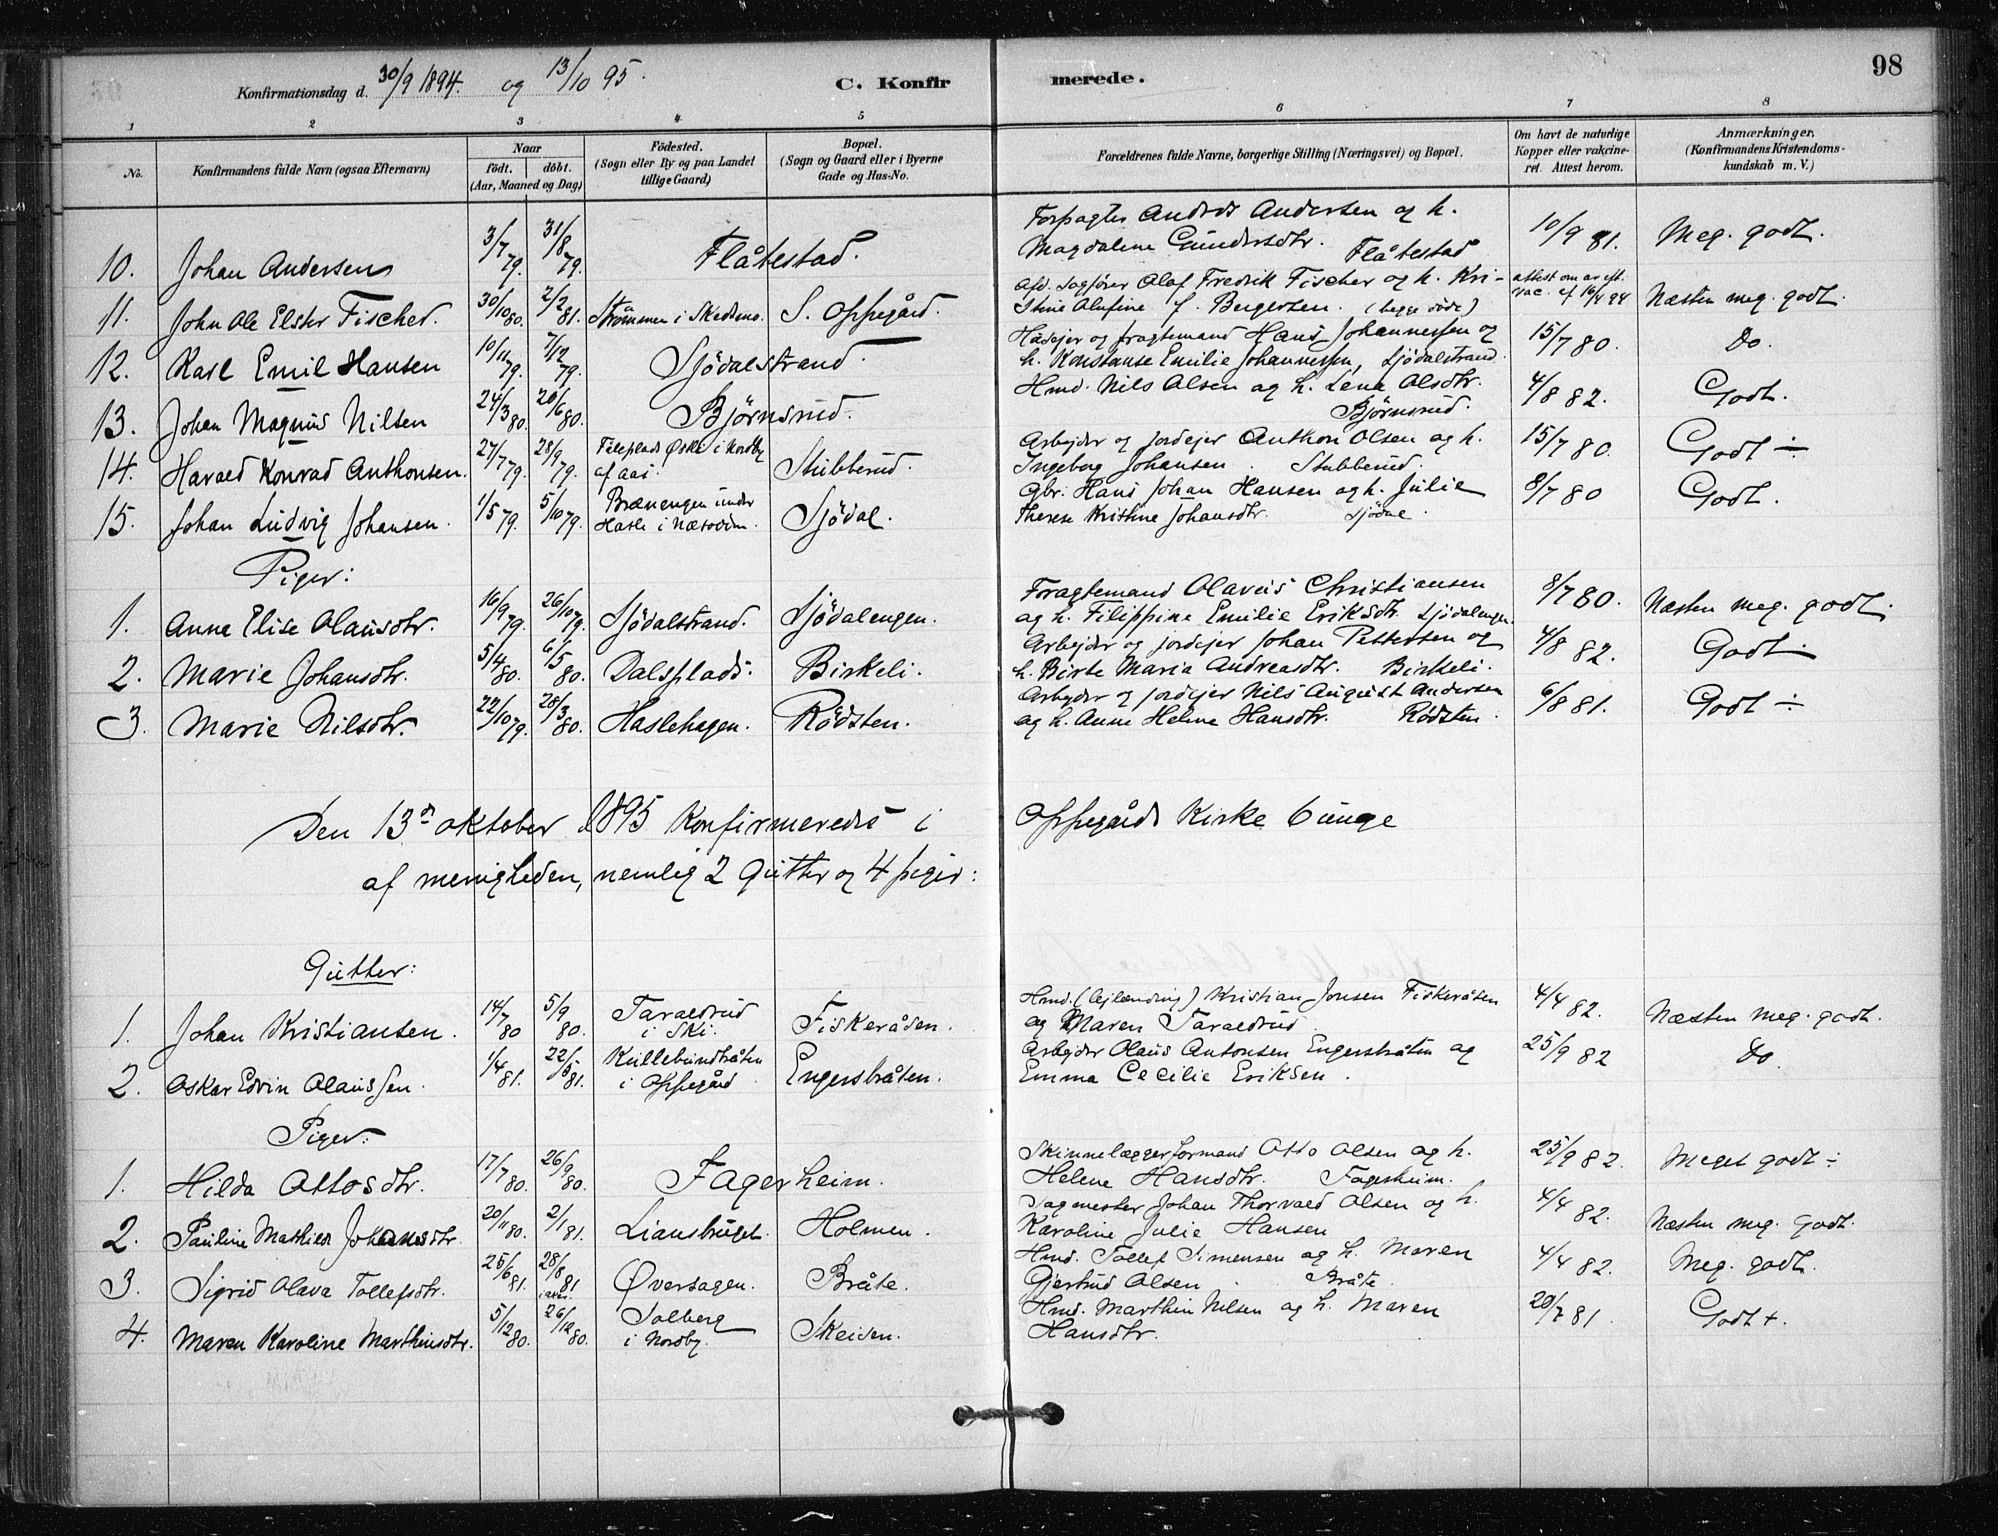 98
Konfirmationsdag d. 30/9 1894. og 13/10 95. C. Konfirmerede.
1 2 3 4 5 6 7 8
No. Konfirmandens fulde Navn (ogsaa Efternavn) Naar født. døbt. (Aar, Maaned og Dag) Fødested. (Sogn eller By og paa Landet tillige Gaard) Bopæl. (Sogn og Gaard eller i Byerne Gade og Hus-No. Forældrenes fulde Navne, borgerlige Stilling (Næringsvei) og Bopæl. Om havt de naturlige Kopper eller vakcineret. Attest herom. Anmærkninger, (Konfirmandens Kristendomskundskab m. V.)
10. Johan Andersen 3/7 79. 31/8 79. Flåtestad. Forpagter Andrés Andersen og h. Magdalene Gundersdtr. Flåtestad 10/9 81. Meg. godt.
11. John Ole Elster Fischer. 30/10 80. 2/2 81. Strømmen i Skedsmo. S. Oppegård. Afd. Sagfører Olaf Fredrik Fischer og h. Kristine Alufine f. Bergersen. (begge døde) attest om ar eft. vac. af 16/4 94 Næsten meg. godt.
12. Karl Emil Hansen 10/11 79. 7/12 79. Sjödalstrand. Husejer og fragtemand Hans Johannessen og h. Konstanse Emilie Johannessen, Sjödalstrand. 15/7 80. Do.
13. Johan Magnus Nilsen 24/3 80. 20/6 80. Björnsrud. Hmd. Nils Olsen og h. Lena Olsdtr. Björnsrud. 4/8 82. Godt.
14. Harald Konrad Anthonsen. 27/7 79. 28/9 79. Teleplads Øste i Nordby af Aas. Stubberud. Arbejder og jordejer Anthon Olsen og h. Ingeborg Johansen. Stubberud. 15/7 80. Godt ÷
15. Johan Ludvig Johansen. 1/5 79. 5/10 79. Brænengen under Hasle i Næsodden. Sjödal. Gbr. Hans Johan Hansen og h. Julie Therese Kristine Johansdtr. Sjödal 8/7 80 Godt.
Piger:
1. Anne Elise Olausdtr. 16/9 79. 26/10 79. Sjödalstrand. Sjödalengen. Fragtemand Olavus Christiansen og h. Filippine Emilie Eriksdtr. Sjödalengen. 8/7 80. Næsten meg. godt.
2. Marie Johansdtr. 5/4 80. 6/5 80. Dalsplads. Birkeli. Arbejder og jordejer Johan Pettersen og h. Birte Maria Andreasdtr. Birkeli. 4/8 82. Godt.
3. Marie Nilsdtr. 22/10 79. 28/3 80. Haslehagen. Rödsten. Arbejder og jordejer Nils August Andersen og h. Anne Helene Hansdtr. Rödsten. 6/8 81. Godt ÷
Den 13de oktober 1895 konfirmeredes i Oppegårds Kirke 6 unge
af menigheden, nemlig 2 Gutter og 4 piger:
Gutter:
1. Johan Kristiansen. 14/7 80 5/9 80. Taraldrud i Ski. Fiskeråsen. Hmd. (lejlænding) Kristian Jonsen Fiskeråsen og Maren Taraldrud. 4/4 82. Næsten meg. godt.
2. Oskar Edvin Olaussen. 1/4 81. 22/5 81. Kullebundbråten i Oppegård Engersbråten. Arbejder Olaus Antonsen Engersbråten og Emma Cecilie Eriksen. 25/9 82 Do.
Piger:
1. Hilda Ottosdtr. 17/7 80. 26/9 80. Fagerheim. Skinnelæggerformand Otto Olsen og h. Helene Hansdtr. Fagerheim. 25/9 82. Meget godt ÷
2. Pauline Mathilde Johansdtr. 20/11 80. 2/1 81. Liansbruget. Holmen. Sagmester Johan Thorvald Olsen og h. Karoline Julie Hansen 4/4 82. Næsten meg. godt.
3. Sigrid Olava Tollefsdtr. 25/6 81. 28/8 81 Øversagen. Bråte. Hmd. Tollef Simensen og h. Maren Gjertrud Olsen. Bråte. 4/4 82. Meg. godt.
4. Maren Karoline Marthinsdtr. 5/12 80. 26/12 80. Solberg i Nordby. Skeisen. Hmd. Marthin Nilsen og h. Maren Hansdtr. 20/7 81. Godt +.